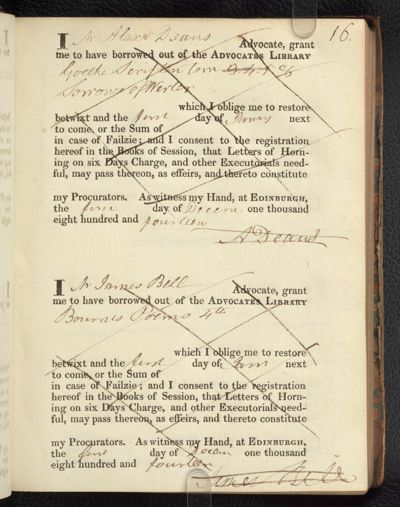 16.
I Mr Alexr Deans Advocate, grant
me to have borrowed out of the ADVOCATES LIBRARY
Goethe
Sorrows of Werter
which I oblige me to restore
betwixt and the first day of Jany next
to come, or the Sum of
in case of Failzie; and I consent to the registration
hereof in the Books of Session, that Letters of Horn-
ing on six Days Charge, and other Executorials need-
ful, may pass thereon, as effeirs, and thereto constitute
my Procurators. As witness my Hand, at EDINBURGH,
the first day of Decem one thousand
eight hundred and fourteen
A Deans
I Mr James Bell Advocate, grant
me to have borrowed out of the ADVOCATES LIBRARY
Bournes Poems 4to
which I oblige me to restore
betwixt and the first day of Jany next
to come, or the Sum of
in case of Failzie; and I consent to the registration
hereof in the Books of Session, that Letters of Horn-
ing on six Days Charge, and other Executorials need-
ful, may pass thereon, as effeirs, and thereto constitute
my Procurators. As witness my Hand, at EDINBURGH,
the first day of Decem one thousand
eight hundred and fourteen
James Bell